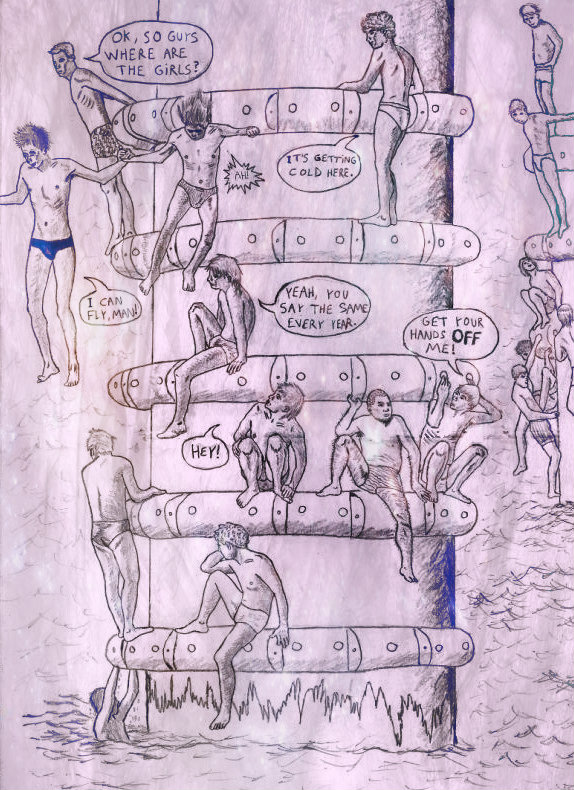 OK, SO GUYS
WHERE ARE
THE GIRLS?
AH!
IT'S GETTING
COLD HERE.
I CAN
FLY, MAN!
YEAH, YOU
SAY THE SAME
EVERY YEAR.
GET YOUR
HANDS OFF
ME!
HEY!